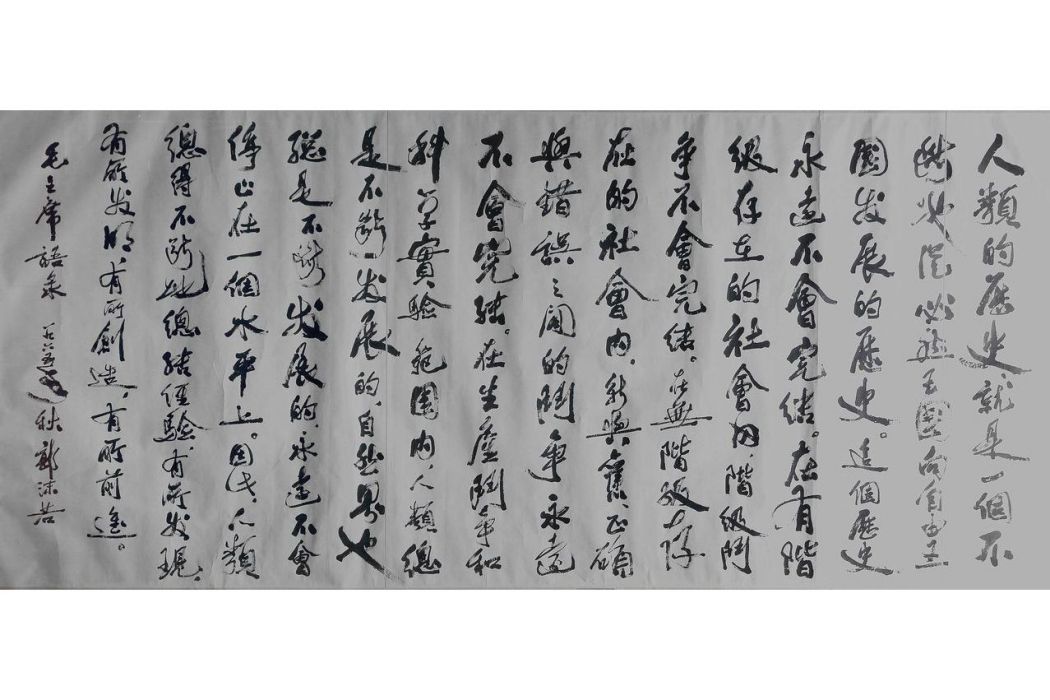 人類的歷史，就是一個不
断地從必然王國向自由王
國发展的歷史。這個歷史
永遠不會完結。在有階
级存在的社會内，階级鬥
爭不會完结。在無階级存
在的社會内，新與舊、正確
與錯誤之間的鬥爭永遠
不會完結。在生産鬥爭和
科学實验範圍内，人類總
是不斷发展的，自然界也
總是不斷发展的，永遠不會
停止在一個水平上。因此，人類
總得不斷地總结經驗，有所发現，
有所发明，有所創造，有所前進。
毛主席語录 一九六五年秋 郭沫若